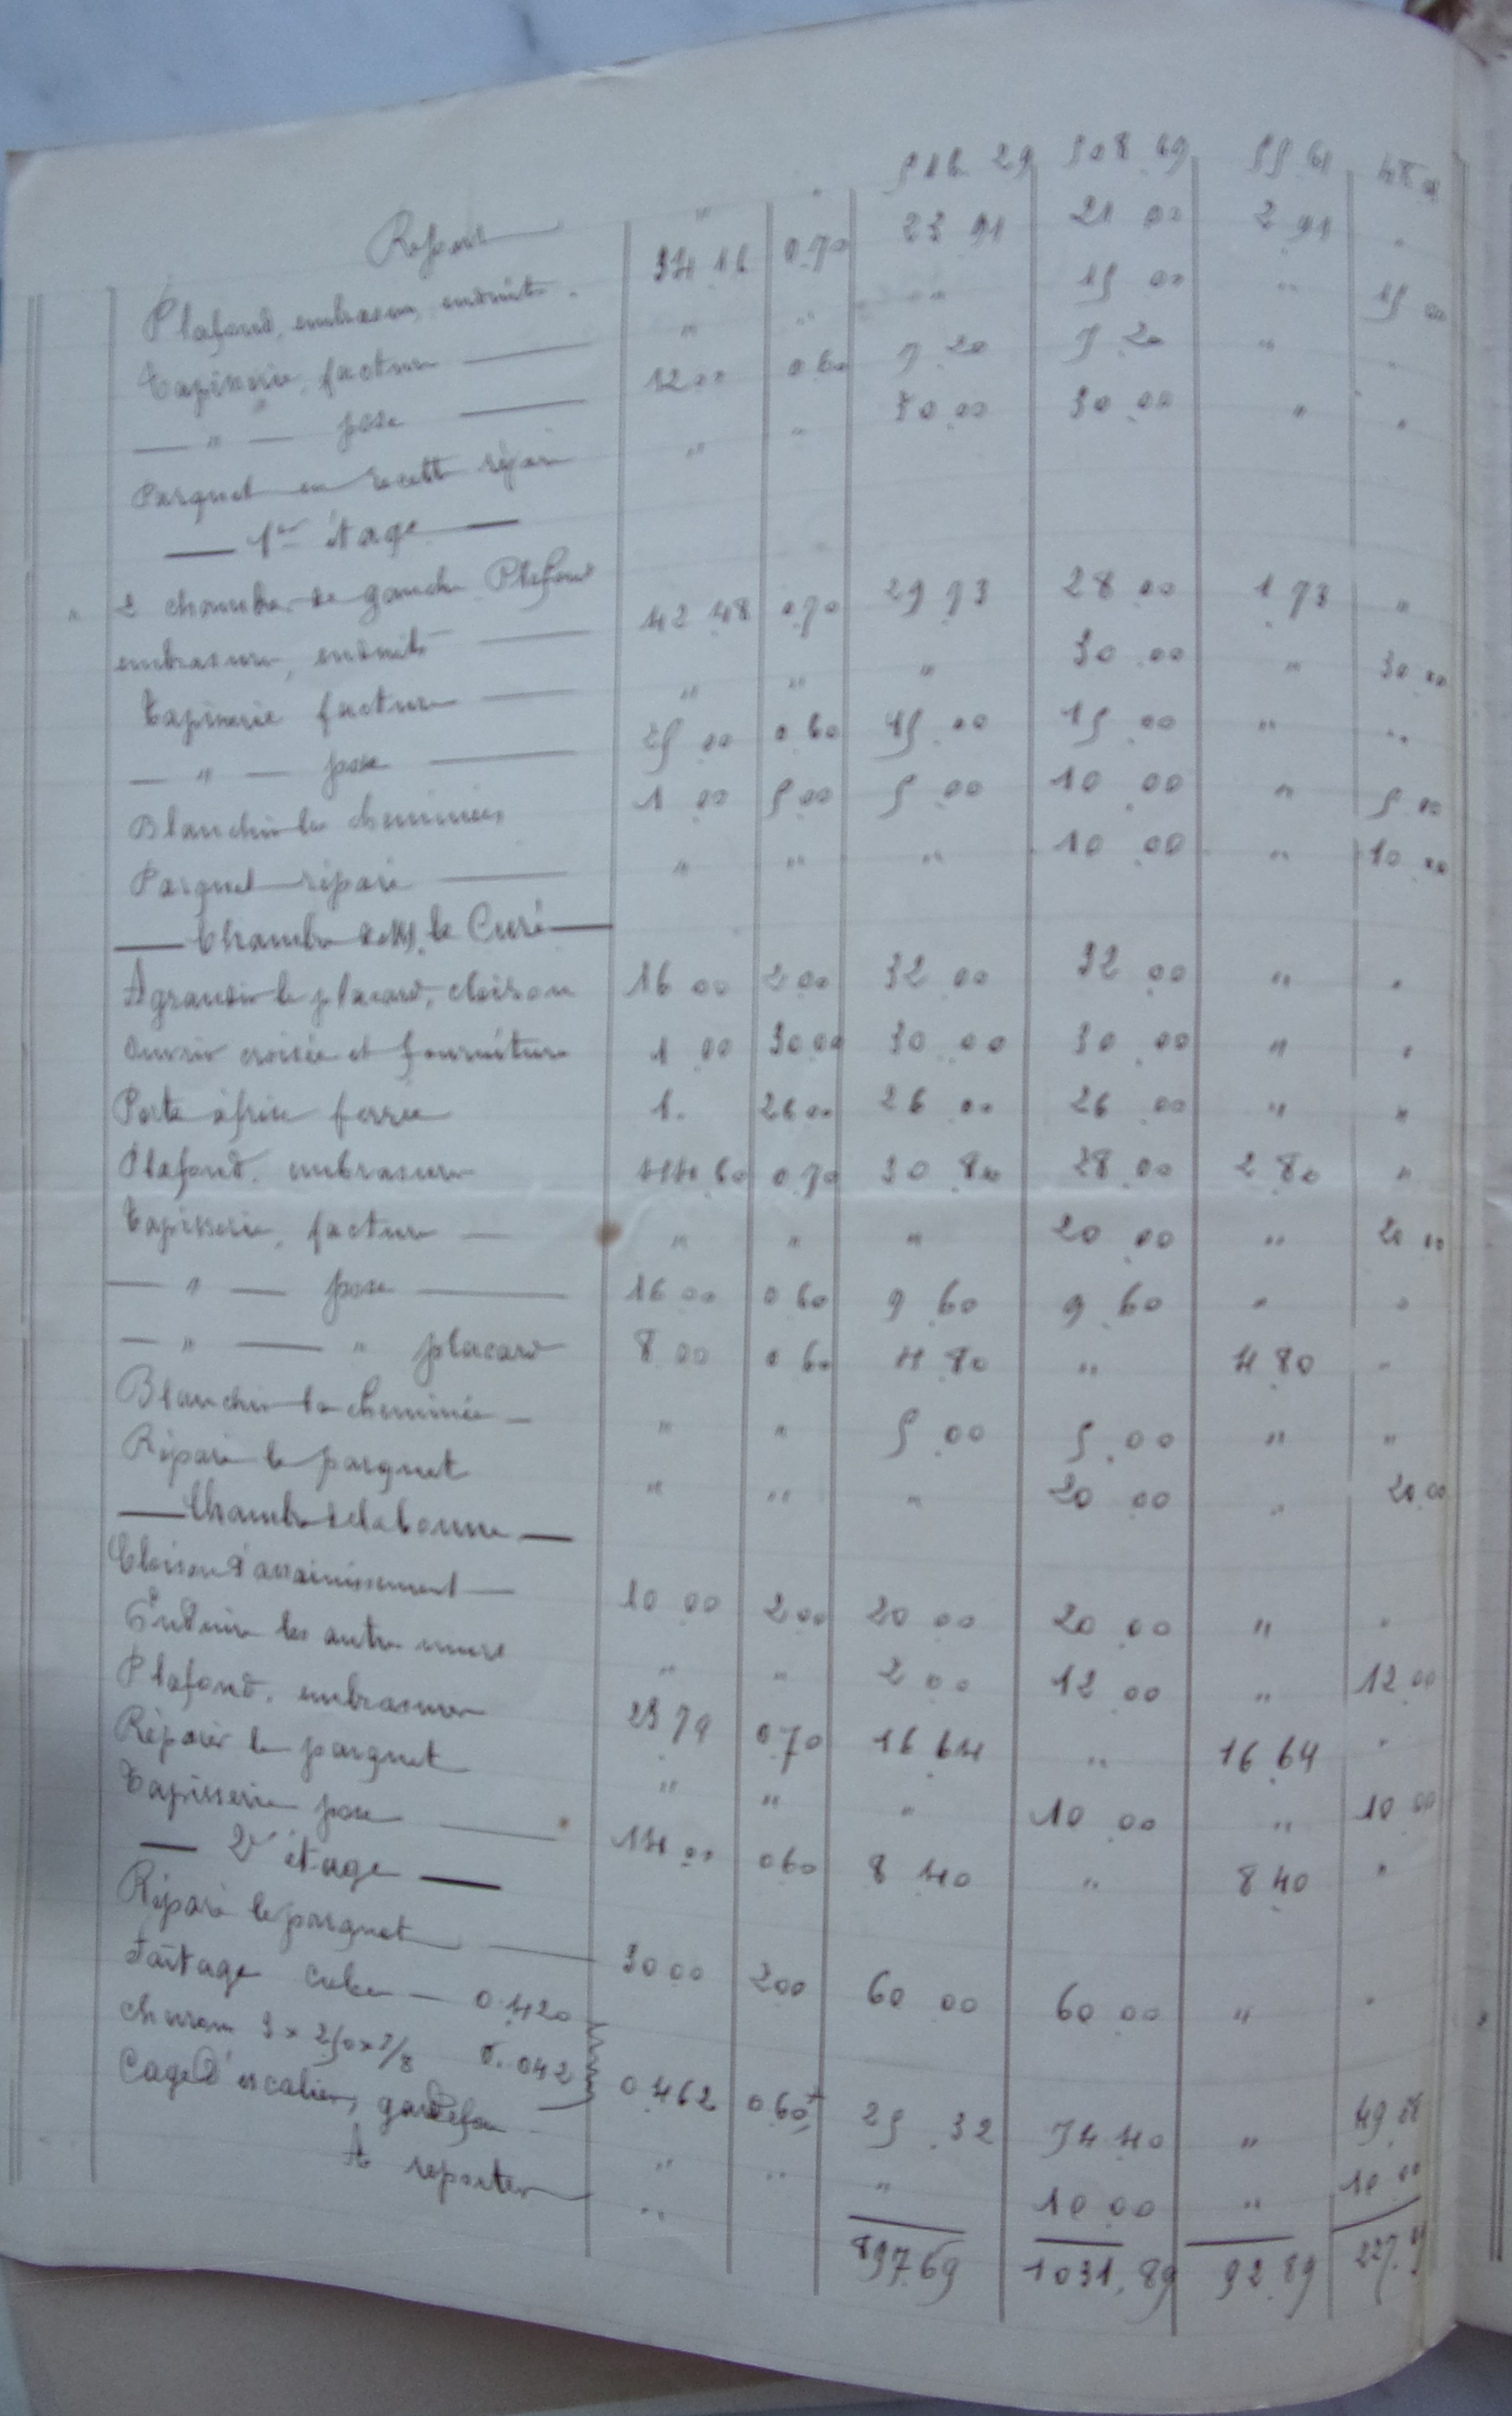 Report " " 516.29 508.69 55.61
Plafond, embrasures, enduits. 34.16 0.70 23.91 21.00 2.91 "
Tapisserie, facture " " " 15.00 " 15.00
— " — pose 12.00 0.60 7.20 7.20 " "
Parquet en répar " " 30.00 30.00 " "
— 1er étage —
2 chambres de gauche Plafond
embrasures, enduits 42.48 0.70 29.73 28.00 1.73 "
Tapisserie facture " " " 30.00 " 30.00
— " — pose 25.00 0.60 15.00 15.00 " "
Blanchir les cheminées 1.00 5.00 5.00 10.00 " 5.00
Parquet réparé " " " 10.00 " 10.00
— Chambre de M. le Curé —
Agrandir le placard, cloison 16.00 2.00 32.00 32.00 " "
Ouvrir croisée et fourniture 1.00 30.00 30.00 30.00 " "
Porte à frise ferrée 1. 26.00 26.00 26.00 " "
Plafond, embrasures 44.60 0.70 30.80 28.00 2.80 "
Tapisserie, facture — " " " 20.00 " 20.00
— " — pose 16.00 0.60 9.60 9.60 " "
— " — " placard 8.00 0.60 4.80 " 4.80 "
Blanchir la cheminée — " " 5.00 5.00 " "
Réparé le parquet " " " 20.00 " 20.00
— Chambre de la bonne —
Cloison d'assainissement — 10.00 2.00 20.00 20.00 " "
Enduire les autres murs " " 2.00 12.00 " 12.00
Plafond, embrasures 23.79 0.70 16.64 " 16.64 "
Réparer le parquet " " " 10.00 " 10.00
Tapisserie pose 14.00 0.60 8.40 " 8.40 "
— 2e étage —
Réparé le parquet 30.00 2.00 60.00 60.00 " "
Faîtage cube — 0.420
chevrons 3 x 2,50 x 7/8 0.042 0.462 0.60 25.32 74.40 " 49.08
Cage d'escalier, gardefou " " " 10.00 " 10.00
A reporter " 897.69 1031.89 92.89